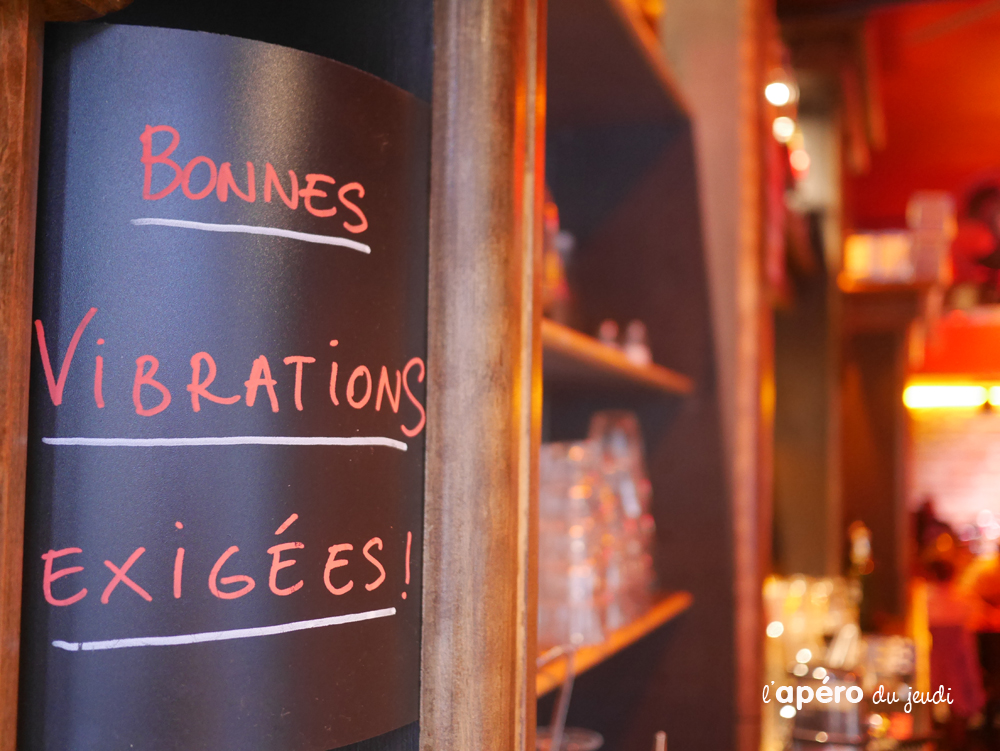 BONNES
ViBRATiONS
EXiGÉES!
l'apéro du jeudi